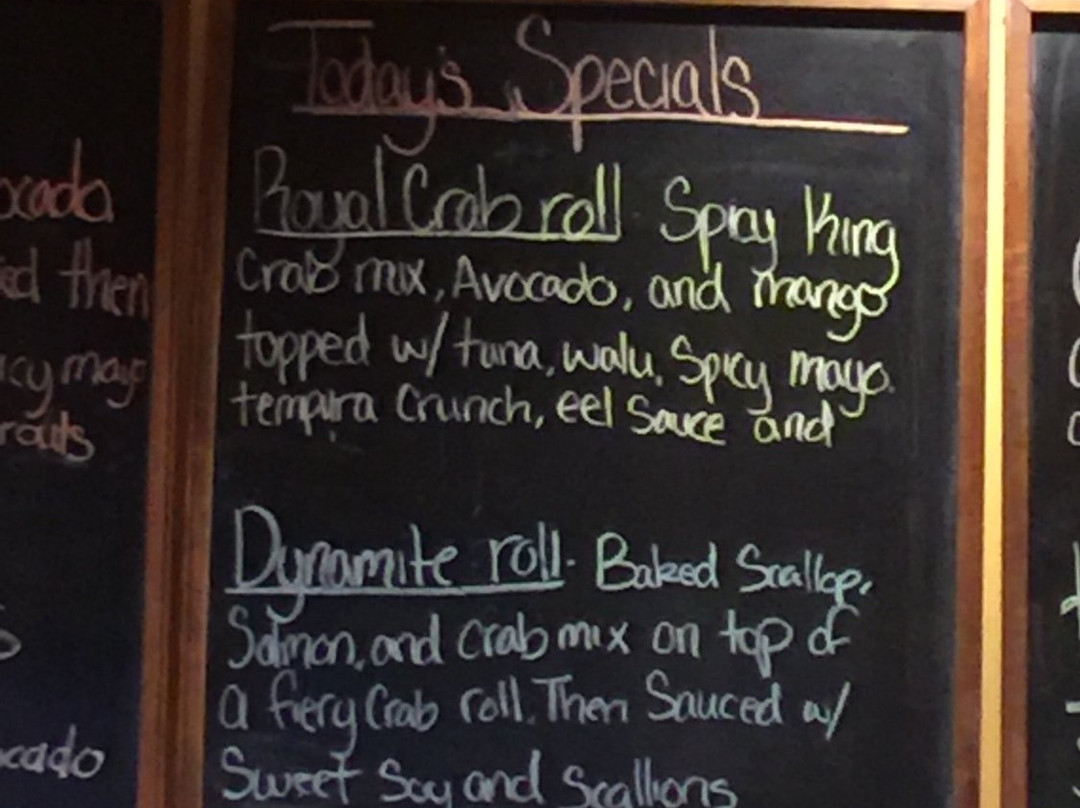 Today's Specials
Royal Crab roll Spicy King
Crab mix, Avocado, and mango
topped w/ tuna, walu, Spicy mayo.
tempura Crunch, eel Sauce and
Dynamite roll. Baked Scallop,
Salmon, and crab mix on top of
a fiery Crab roll. Then Sauced w/
Sweet Soy and Scallions
ocado
ied then
icy mayo
routs
cado